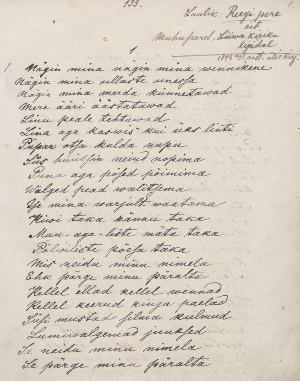 133.
Laulis: Reegi pere
eit
Muhumaal, Liiwa kiriku
ligidal
1.
1. Nägin mina nägin mina wennikene
Nägin mina ulluste unessa
Nägin mina merda künnetawad
Mere ääri äästatawad
Liiwa peale tehtawad
Lina aga kaswis kui üks liuti
Kupar otsa kulda nupu
Siis hüütsin neiud nopima
Puna aga põsed põimima
Walged pead walitsema
Ise mina warjult waatama
Kiwi taka kännu taka
Maa-aga-liste mäta taka
Põlwiliste põesa taka
Mis neidu minu nimela
Ehk pärge minu päralta
Kellel ellad kellel wennad
Kellel keerud kinga paelad
Siidi mustad silma kulmud
Lumiwalgemad juuksed
Se neidu minu nimela
Se pärge minu päralta